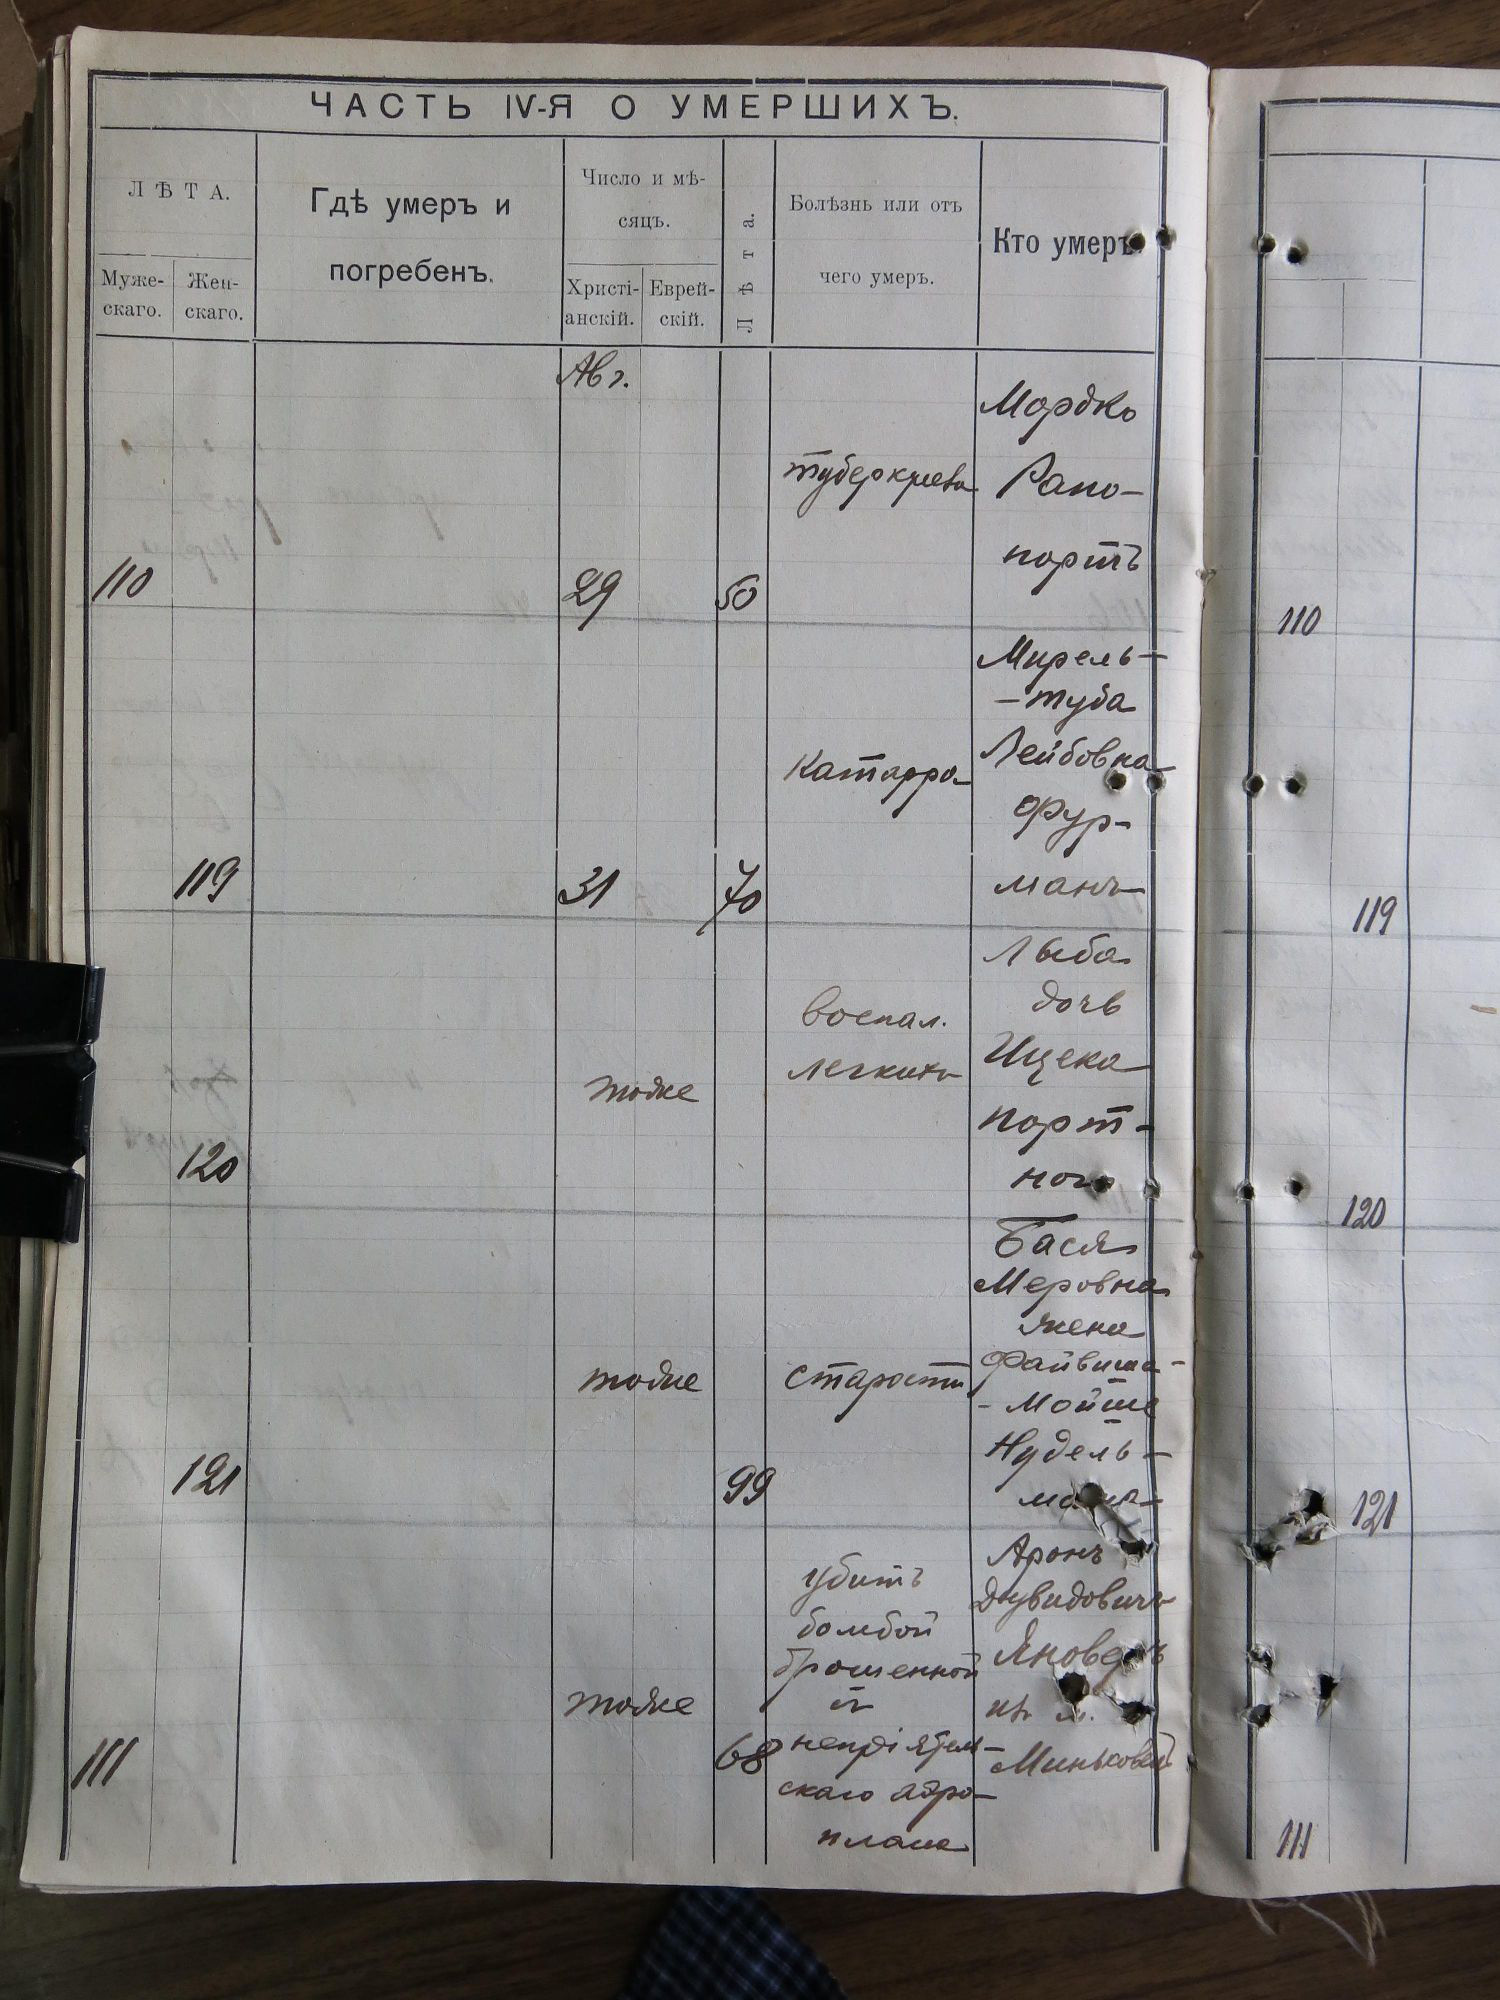 ЧАСТЬ IV-Я О УМЕРШИХЪ.
ЛѢТА.
Муже-
скаго.
Жен-
скаго.
Гдѣ умеръ и
погребенъ.
Число и мѣ-
сяцъ.
Христі-
анскій.
Еврей-
скій.
Лѣта.
Болѣзнь или отъ
чего умеръ.
Кто умеръ.
Авг.
110
29
50
туберкулеза
Мордко
Рапо-
портъ
110
119
31
70
Катарра
Мирель-
-туба
Лейбовна
Фур-
манъ
119
120
тоже
воспал.
легкихъ
Лыба
дочь
Ицека
Порт-
ного
120
121
тоже
99
старости
Бася
Меровна
жена
Файвиша-
-Мойше
Нудель-
манъ
121
111
тоже
68
убитъ
бомбой
брошенной
съ
непріятель-
скаго аэро-
плана
Аронъ
Дувидовичъ
Яновецъ
изъ м.
Миньковецъ
111